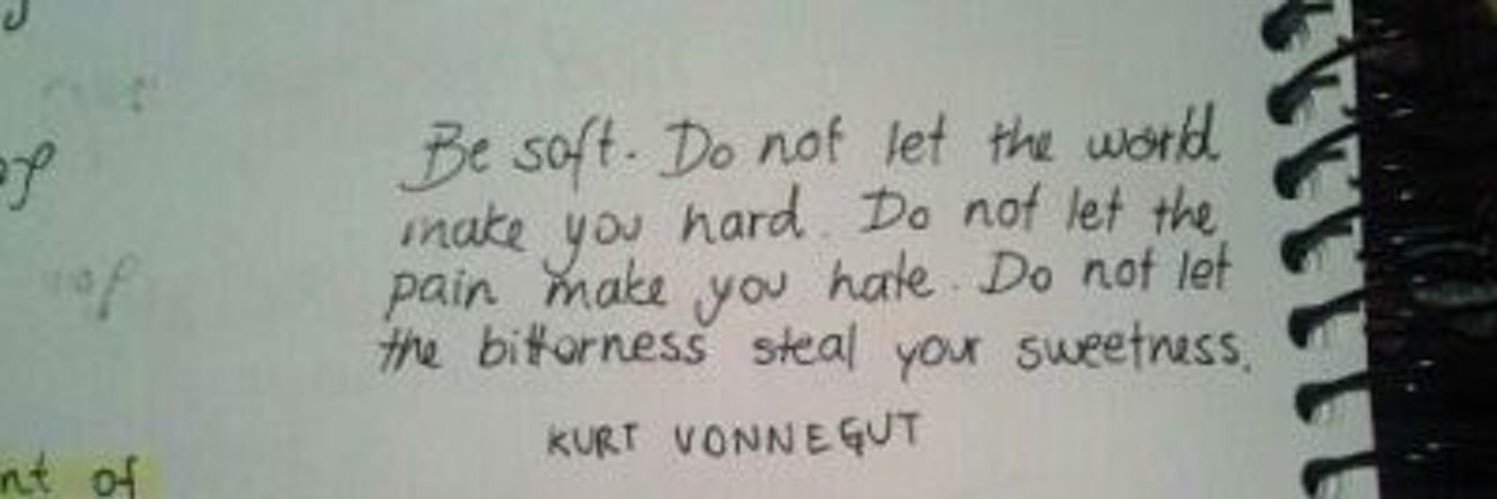 Be soft. Do not let the world
make you hard. Do not let the
pain make you hate. Do not let
the bitterness steal your sweetness.
KURT VONNEGUT
of
nt of